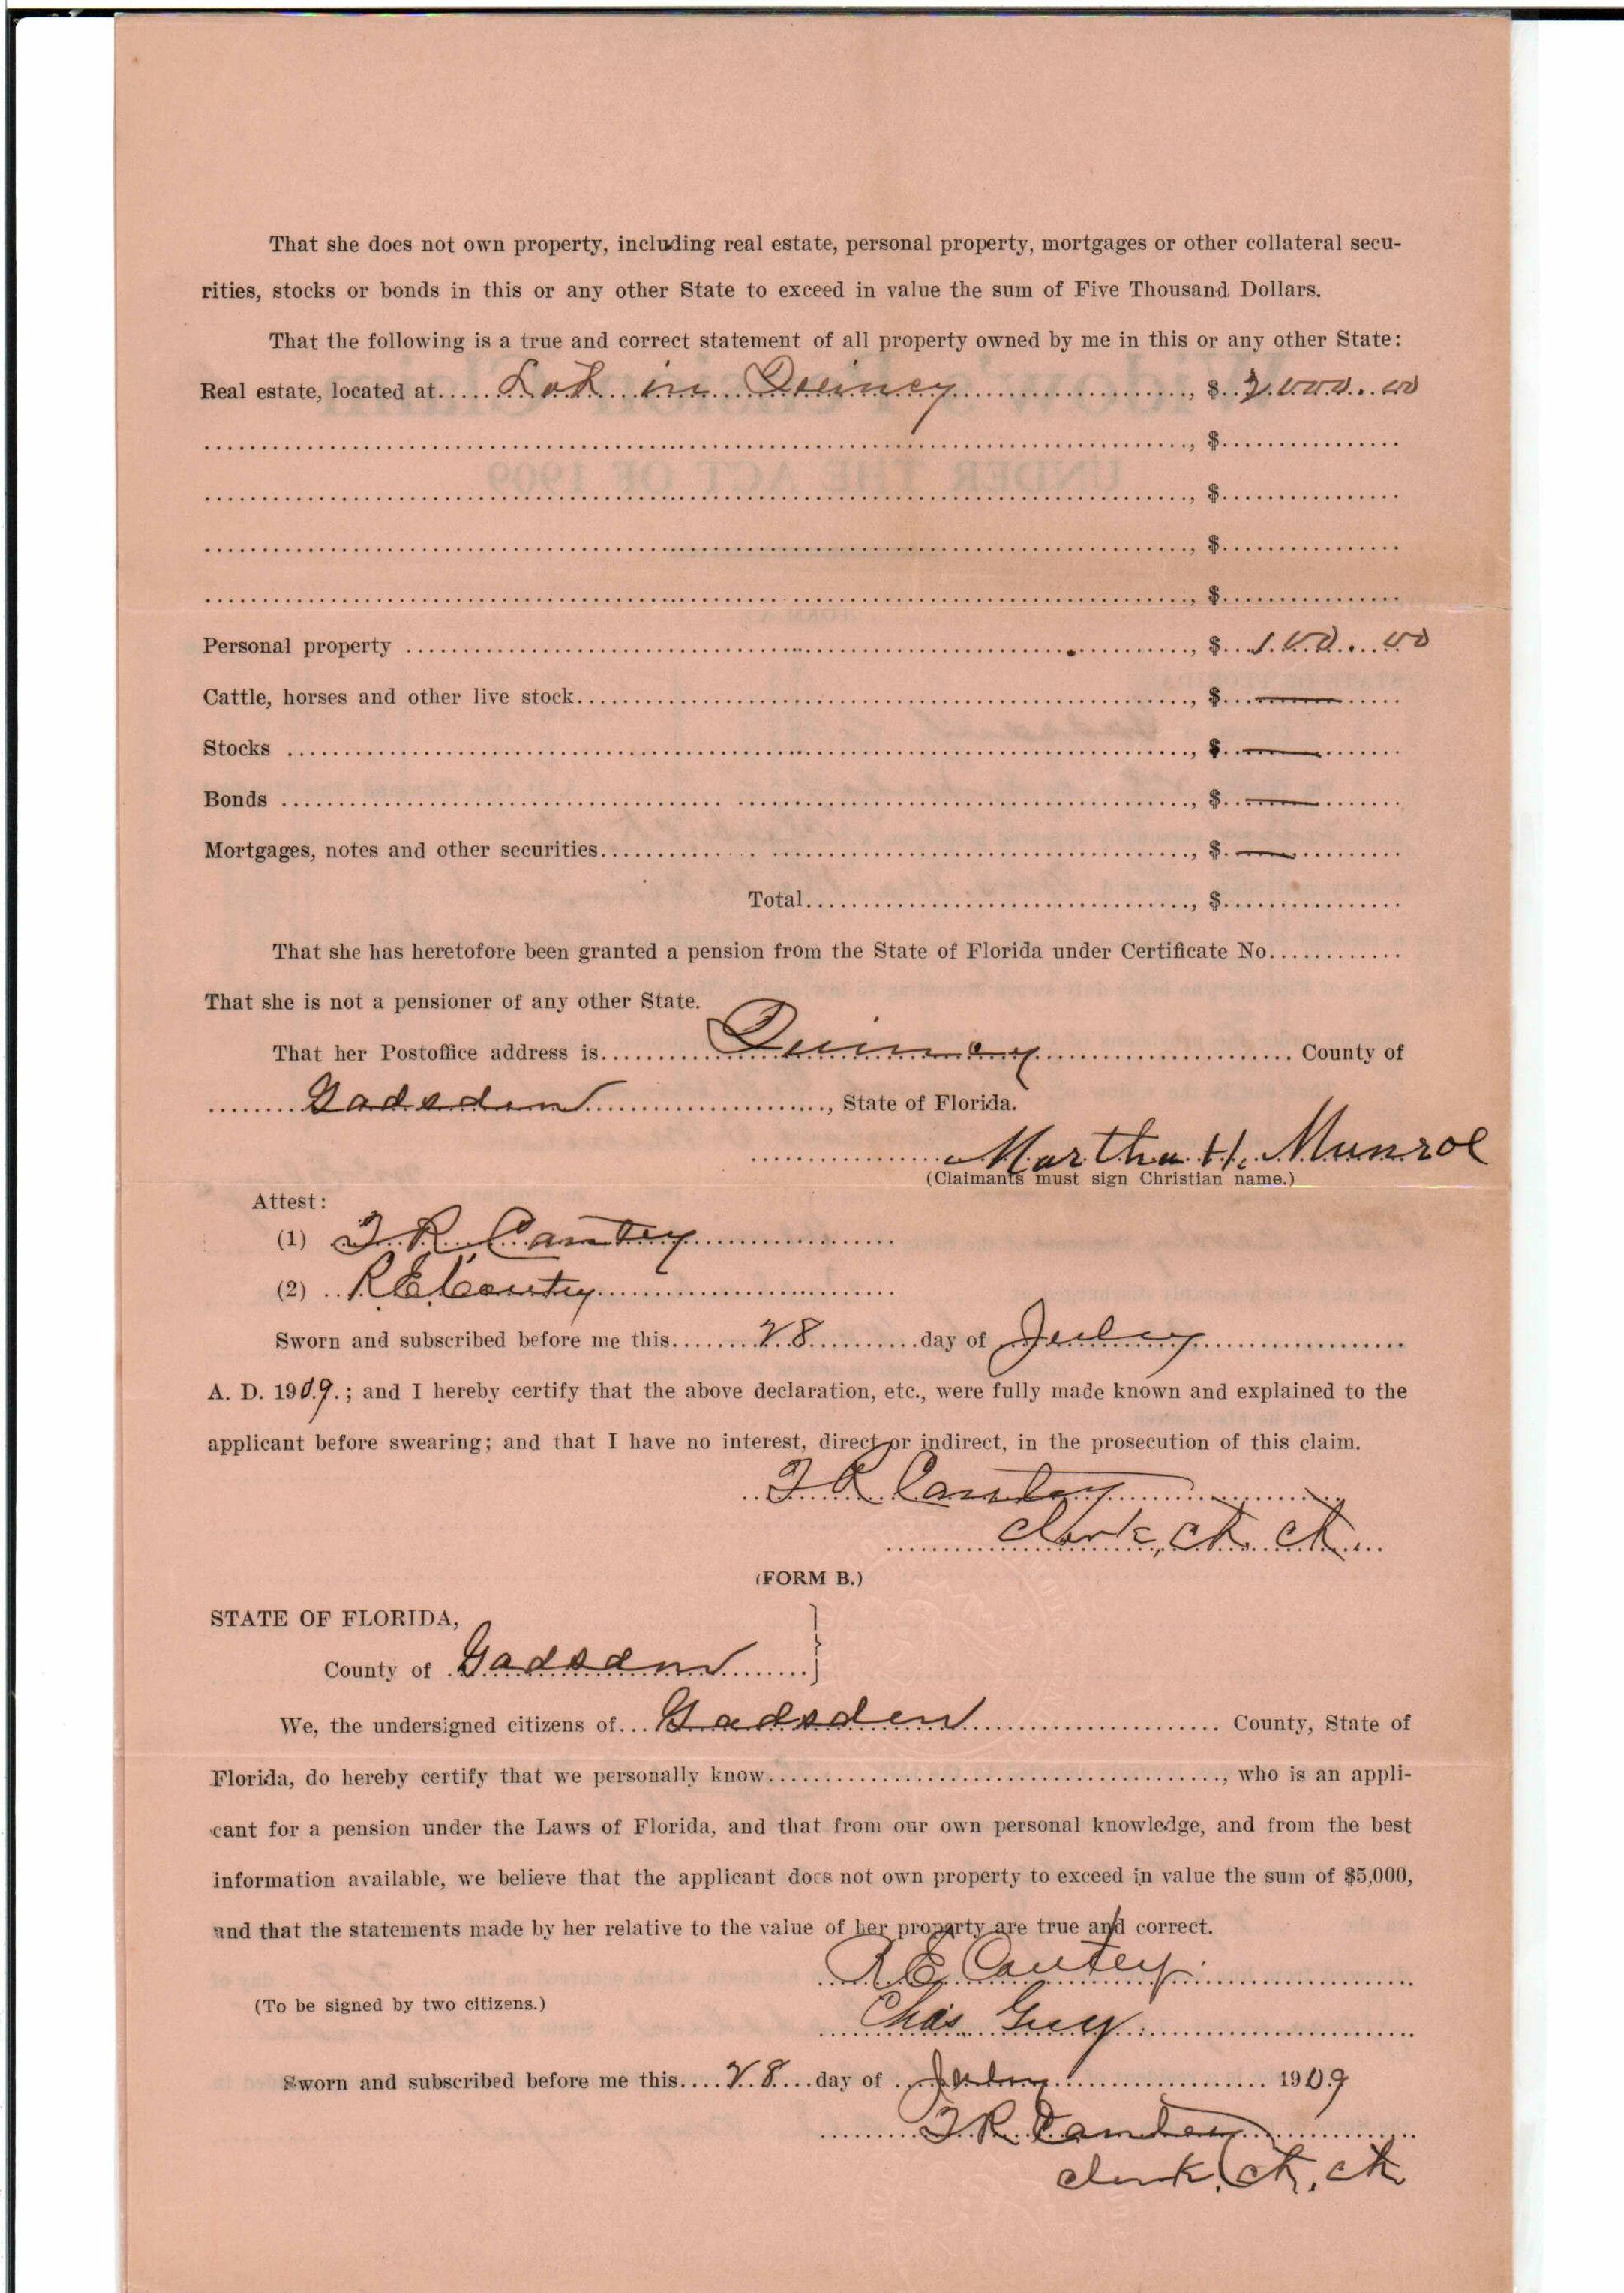 That she does not own property, including real estate, personal property, mortgages or other collateral secu-
rities, stocks or bonds in this or any other State to exceed in value the sum of Five Thousand Dollars.
That the following is a true and correct statement of all property owned by me in this or any other State:
Real estate, located at..... Lot in Quincy ....................., $
UNDER THE ACT OF 1909
..............................................................................., $................
..............................................................................., $................
..............................................................................., $................
..............................................................................., $................
Personal property ..............................................................., $ 100.00
Cattle, horses and other live stock..............................................., $ —
Stocks ..............................................................., $ —
Bonds ..............................................................., $ —
Mortgages, notes and other securities..............................................., $ —
Total..............................., $................
That she has heretofore been granted a pension from the State of Florida under Certificate No............
That she is not a pensioner of any other State.
That her Postoffice address is......... Quincy ..................... County of
........ Gadsden ....................., State of Florida.
Martha H. Munroe
(Claimants must sign Christian name.)
Attest:
(1) T. R. Cantey
(2) R E Cantey
Sworn and subscribed before me this....... 28 .......day of July
A. D. 1909.; and I hereby certify that the above declaration, etc., were fully made known and explained to the
applicant before swearing; and that I have no interest, direct or indirect, in the prosecution of this claim.
T R Cantey
Clerk, Ct. Ct.
(FORM B.)
STATE OF FLORIDA,
County of Gadsden }
We, the undersigned citizens of... Gadsden ..................... County, State of
Florida, do hereby certify that we personally know..............................., who is an appli-
cant for a pension under the Laws of Florida, and that from our own personal knowledge, and from the best
information available, we believe that the applicant does not own property to exceed in value the sum of $5,000,
and that the statements made by her relative to the value of her property are true and correct.
R E Cantey
(To be signed by two citizens.)
Chas. Guy
Sworn and subscribed before me this.... 28 ....day of July ..................... 1909
T. R. Cantey
clerk, Ct, Ct